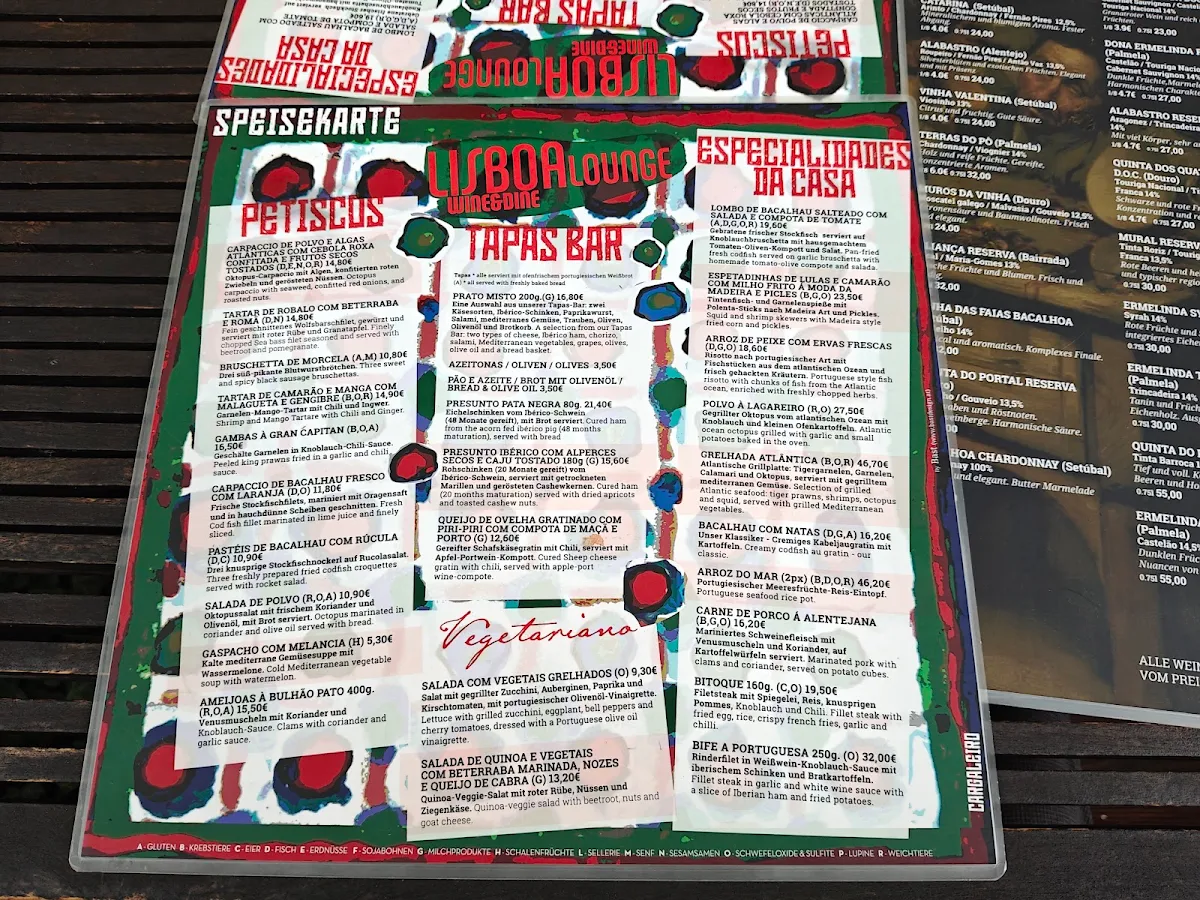 SPEISEKARTE
LISBOA LOUNGE
WINE&DINE
PETISCOS
CARPACCIO DE POLVO E ALGAS
ATLÂNTICAS COM CEBOLA ROXA
CONFITADA E FRUTOS SECOS
TOSTADOS (D,E,N,O,R) 14,80€
Oktopus-Carpaccio mit Algen, konfitierten roten
Zwiebeln und gerösteten Nüssen. Octopus
carpaccio with seaweed, confitted red onions, and
roasted nuts.
TARTAR DE ROBALO COM BETERRABA
E ROMÃ (D,N) 14,80€
Fein geschnittenes Wolfsbarschfilet, gewürzt und
serviert mit roter Rübe und Granatapfel. Finely
chopped Sea bass filet seasoned and served with
beetroot and pomegranate.
BRUSCHETTA DE MORCELA (A,M) 10,80€
Drei süß-pikante Blutwurstbrötchen. Three sweet
and spicy black sausage bruschettas.
TARTAR DE CAMARÃO E MANGA COM
MALAGUETA E GENGIBRE (B,O,R) 14,90€
Garnelen-Mango-Tartar mit Chili und Ingwer.
Shrimp and Mango Tartare with Chili and Ginger.
GAMBAS À GRAN CAPITAN (B,O,A)
16,50€
Geschälte Garnelen in Knoblauch-Chili-Sauce.
Peeled king prawns fried in a garlic and chili
sauce.
CARPACCIO DE BACALHAU FRESCO
COM LARANJA (D,O) 11,80€
Frische Stockfischfilets, mariniert mit Orangensaft
und in hauchdünne Scheiben geschnitten. Fresh
Cod fish fillet marinated in lime juice and finely
sliced.
PASTÉIS DE BACALHAU COM RÚCULA
(D,C) 10,90€
Drei knusprige Stockfischnockerl auf Rucolasalat.
Three freshly prepared fried codfish croquettes
served with rocket salad.
SALADA DE POLVO (R,O,A) 10,90€
Oktopussalat mit frischem Koriander und
Olivenöl, mit Brot serviert. Octopus marinated in
coriander and olive oil served with bread.
GASPACHO COM MELANCIA (H) 5,30€
Kalte mediterrane Gemüsesuppe mit
Wassermelone. Cold Mediterranean vegetable
soup with watermelon.
AMEIJOAS À BULHÃO PATO 400g.
(R,O,A) 15,50€
Venusmuscheln mit Koriander und
Knoblauch-Sauce. Clams with coriander and
garlic sauce.
TAPAS BAR
Tapas * alle serviert mit ofenfrischem portugiesischen Weißbrot
(A) * all served with freshly baked bread
PRATO MISTO 200g.(G) 16,80€
Eine Auswahl aus unserer Tapas-Bar: zwei
Käsesorten, Ibérico-Schinken, Paprikawurst,
Salami, mediterranes Gemüse, Trauben, Oliven,
Olivenöl und Brotkorb. A selection from our Tapas
Bar: two types of cheese, Ibérico ham, chorizo,
salami, Mediterranean vegetables, grapes, olives,
olive oil and a bread basket.
AZEITONAS / OLIVEN / OLIVES 3,50€
PÃO E AZEITE / BROT MIT OLIVENÖL /
BREAD & OLIVE OIL 3,50€
PRESUNTO PATA NEGRA 80g. 21,40€
Eichelschinken vom Ibérico-Schwein
(48 Monate gereift), mit Brot serviert. Cured ham
from the acorn fed ibérico pig (48 months
maturation), served with bread
PRESUNTO IBÉRICO COM ALPERCES
SECOS E CAJU TOSTADO 180g (G) 15,60€
Rohschinken (20 Monate gereift) vom
Ibérico-Schwein, serviert mit getrockneten
Marillen und gerösteten Cashewkernen. Cured ham
(20 months maturation) served with dried apricots
and toasted cashew nuts.
QUEIJO DE OVELHA GRATINADO COM
PIRI-PIRI COM COMPOTA DE MAÇÃ E
PORTO (G) 12,60€
Gereifter Schafskäsegratin mit Chili, serviert mit
Apfel-Portwein-Kompott. Cured Sheep cheese
gratin with chili, served with apple-port
wine-compote.
Vegetariano
SALADA COM VEGETAIS GRELHADOS (O) 9,30€
Salat mit gegrillter Zucchini, Auberginen, Paprika und
Kirschtomaten, mit portugiesischer Olivenöl-Vinaigrette.
Lettuce with grilled zucchini, eggplant, bell peppers and
cherry tomatoes, dressed with a Portuguese olive oil
vinaigrette.
SALADA DE QUINOA E VEGETAIS
COM BETERRABA MARINADA, NOZES
E QUEIJO DE CABRA (G) 13,20€
Quinoa-Veggie-Salat mit roter Rübe, Nüssen und
Ziegenkäse. Quinoa-veggie salad with beetroot, nuts and
goat cheese.
ESPECIALIDADES
DA CASA
LOMBO DE BACALHAU SALTEADO COM
SALADA E COMPOTA DE TOMATE
(A,D,G,O,R) 19,60€
Gebratene frischer Stockfisch serviert auf
Knoblauchbruschetta mit hausgemachtem
Tomaten-Oliven-Kompott und Salat. Pan-fried
fresh codfish served on garlic bruschetta with
homemade tomato-olive compote and salada.
ESPETADINHAS DE LULAS E CAMARÃO
COM MILHO FRITO À MODA DA
MADEIRA E PICLES (B,G,O) 23,50€
Tintenfisch- und Garnelenspieße mit
Polenta-Sticks nach Madeira Art und Pickles.
Squid and shrimp skewers with Madeira style
fried corn and pickles.
ARROZ DE PEIXE COM ERVAS FRESCAS
(D,G,O) 18,60€
Risotto nach portugiesischer Art mit
Fischstücken aus dem atlantischen Ozean und
frisch gehackten Kräutern. Portuguese style fish
risotto with chunks of fish from the Atlantic
ocean, enriched with freshly chopped herbs.
POLVO À LAGAREIRO (R,O) 27,50€
Gegrillter Oktopus vom atlantischen Ozean mit
Knoblauch und kleinen Ofenkartoffeln. Atlantic
ocean octopus grilled with garlic and small
potatoes baked in the oven.
GRELHADA ATLÂNTICA (B,O,R) 46,70€
Atlantische Grillplatte: Tigergarnelen, Garnelen,
Calamari und Octopus, serviert mit gegrilltem
mediterranen Gemüse. Selection of grilled
Atlantic seafood: tiger prawns, shrimps, octopus
and squid, served with grilled Mediterranean
vegetables.
BACALHAU COM NATAS (D,G,A) 16,20€
Unser Klassiker - Cremiges Kabeljaugratin mit
Kartoffeln. Creamy codfish au gratin - our
classic.
ARROZ DO MAR (2px) (B,D,O,R) 46,20€
Portugiesischer Meeresfrüchte-Reis-Eintopf.
Portuguese seafood rice pot.
CARNE DE PORCO Á ALENTEJANA
(B,G,O) 16,20€
Mariniertes Schweinefleisch mit
Venusmuscheln und Koriander, auf
Kartoffelwürfeln serviert. Marinated pork with
clams and coriander, served on potato cubes.
BITOQUE 160g. (C,O) 19,50€
Filetsteak mit Spiegelei, Reis, knusprigen
Pommes, Knoblauch und Chili. Fillet steak with
fried egg, rice, crispy french fries, garlic and
chilli.
BIFE A PORTUGUESA 250g. (O) 32,00€
Rinderfilet in Weißwein-Knoblauch-Sauce mit
iberischem Schinken und Bratkartoffeln.
Fillet steak in garlic and white wine sauce with
a slice of Iberian ham and fried potatoes.
CARGALEIRO
A - GLUTEN B - KREBSTIERE C - EIER D - FISCH E - ERDNÜSSE F - SOJABOHNEN G - MILCHPRODUKTE H - SCHALENFRÜCHTE L - SELLERIE M - SENF N - SESAMSAMEN O - SCHWEFELOXIDE & SULFITE P - LUPINE R - WEICHTIERE
CATARINA (Setúbal)
24,00
ALABASTRO (Alentejo)
1/8 4.0€ 0.75l 24,00
VINHA VALENTINA (Setúbal)
Viosinho 13%
Citrus und fruchtig. Gute Säure.
1/8 4.0€ 0.75l 24,00
TERRAS DO PÓ (Palmela)
Chardonnay / Viognier 14%
Holz und reife Früchte.
1/8 6.0€ 0.75l 32,00
MUROS DA VINHA (Douro)
Moscatel galego / Malvasia / Gouveio 12,5%
24,00
RESERVA (Bairrada)
Maria-Gomes 13%
32,00
DAS FAIAS BACALHOA
14%
und aromatisch. Komplexes Finale.
DO PORTAL RESERVA
Gouveio 13,5%
und Röstnoten.
Harmonische Säure.
CHARDONNAY (Setúbal)
und elegant. Butter Marmelade
DONA ERMELINDA
(Palmela)
ALABASTRO
1/8 4.7€ 0.75l 27,00
D.O.C. (Douro)
Touriga Nacional
Franca 14%
1/8 4.7€ 0.75l 27,00
0.75l 30,00
Syrah 14%
0.75l 30,00
(Palmela)
Trincadeira 14%
0.75l 30,00
QUINTA DO
Tinta Barroca
0.75l 55,00
(Palmela)
Castelão 14,5%
0.75l 55,00
ALLE WEIN
VOM PREIS